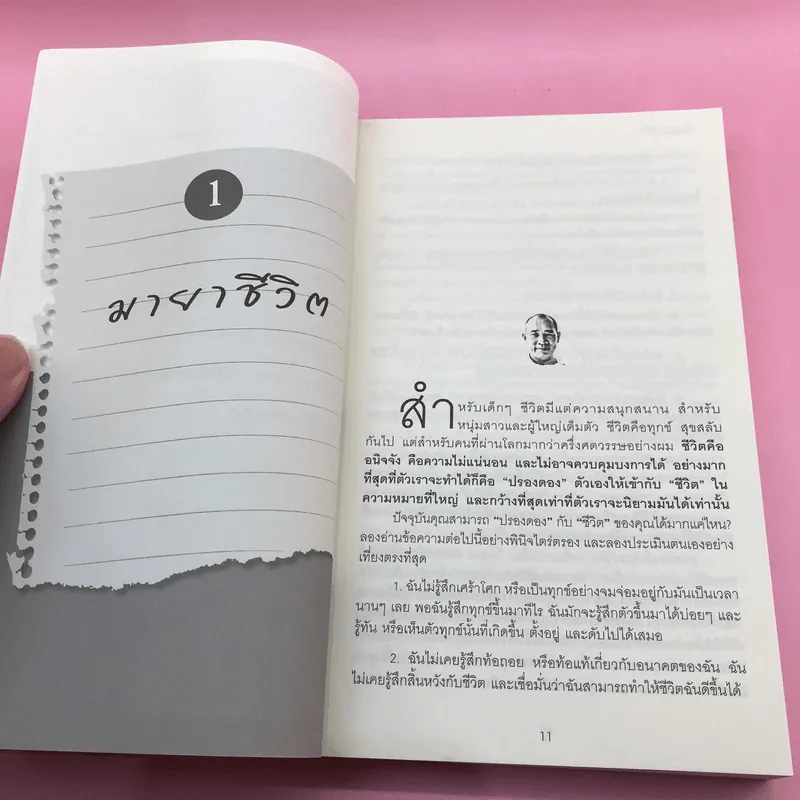 1
มายาชีวิต
สำหรับเด็กๆ ชีวิตมีแต่ความสนุกสนาน สำหรับ
หนุ่มสาวและผู้ใหญ่เต็มตัว ชีวิตคือทุกข์ สุขสลับ
กันไป แต่สำหรับคนที่ผ่านโลกมากว่าครึ่งศตวรรษอย่างผม ชีวิตคือ
อนิจจัง คือความไม่แน่นอน และไม่อาจควบคุมบงการได้ อย่างมาก
ที่สุดที่ตัวเราจะทำได้ก็คือ “ปรองดอง” ตัวเองให้เข้ากับ “ชีวิต” ใน
ความหมายที่ใหญ่ และกว้างที่สุดเท่าที่ตัวเราจะนิยามมันได้เท่านั้น
ปัจจุบันคุณสามารถ “ปรองดอง” กับ “ชีวิต” ของคุณได้มากแค่ไหน?
ลองอ่านข้อความต่อไปนี้อย่างพินิจไตร่ตรอง และลองประเมินตนเองอย่าง
เที่ยงตรงที่สุด
1. ฉันไม่รู้สึกเศร้าโศก หรือเป็นทุกข์อย่างจมจ่อมอยู่กับมันเป็นเวลา
นานๆ เลย พอฉันรู้สึกทุกข์ขึ้นมาทีไร ฉันมักจะรู้สึกตัวขึ้นมาได้บ่อยๆ และ
รู้ทัน หรือเห็นตัวทุกข์นั้นที่เกิดขึ้น ตั้งอยู่ และดับไปได้เสมอ
2. ฉันไม่เคยรู้สึกท้อถอย หรือท้อแท้เกี่ยวกับอนาคตของฉัน ฉัน
ไม่เคยรู้สึกสิ้นหวังกับชีวิต และเชื่อมั่นว่าฉันสามารถทำให้ชีวิตฉันดีขึ้นได้
11